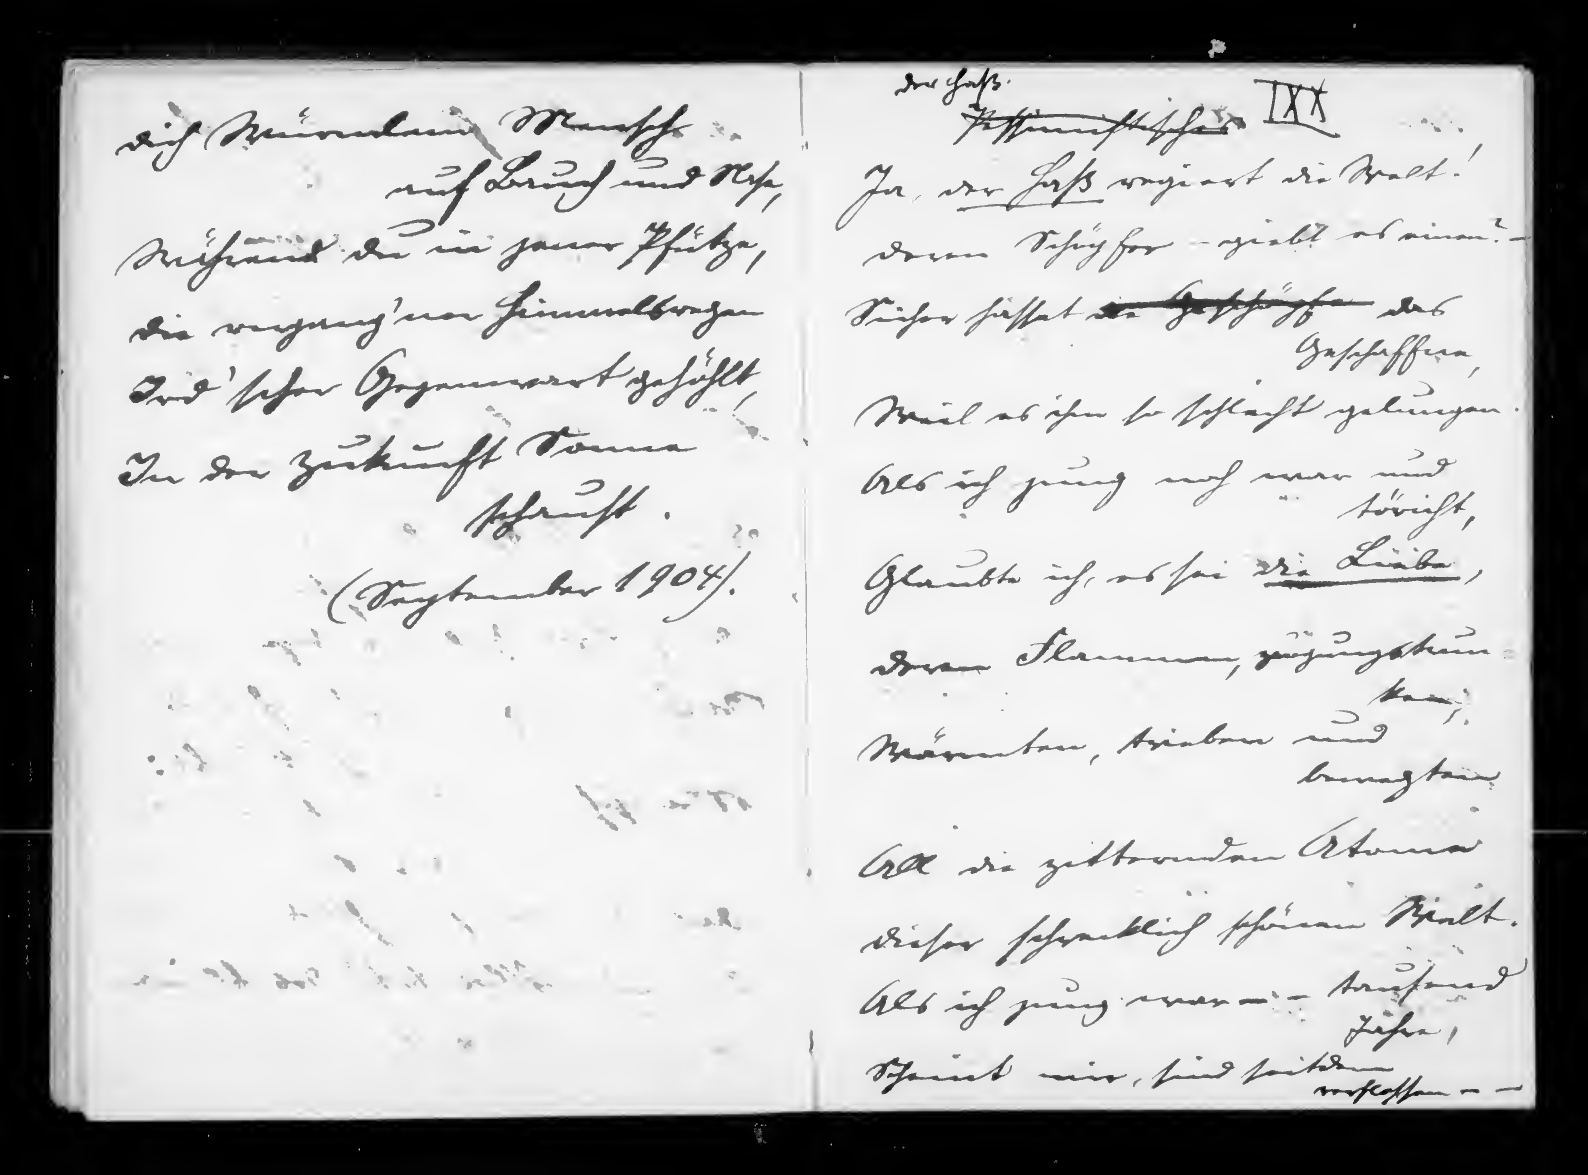 dich Würmlein Mensch
auf Bauch und Nase,
Während du in jener Pfütze,
die vergang'ner Himmelsregen
Ird'scher Gegenwart gehöhlt,
In der Zukunft Sonne
schaust.
(September 1904).
der Haß.
Pessimistisches
IXX
Ja, der Haß regiert die Welt!
deren Schöpfer – giebt es einen? –
Sicher hasset die Geschöpfe das
Geschaffne,
Weil es ihm so schlecht gelungen.
Als ich jung noch war und
töricht,
Glaubte ich, es sei die Liebe,
deren Flammen, zeugungstrun-
ken,
Wärmten, trieben und
bewegten
All die zitternden Atome
dieser schrecklich schönen Welt.
Als ich jung war – – tausend
Jahre,
Scheint mir, sind seitdem
verflossen – –